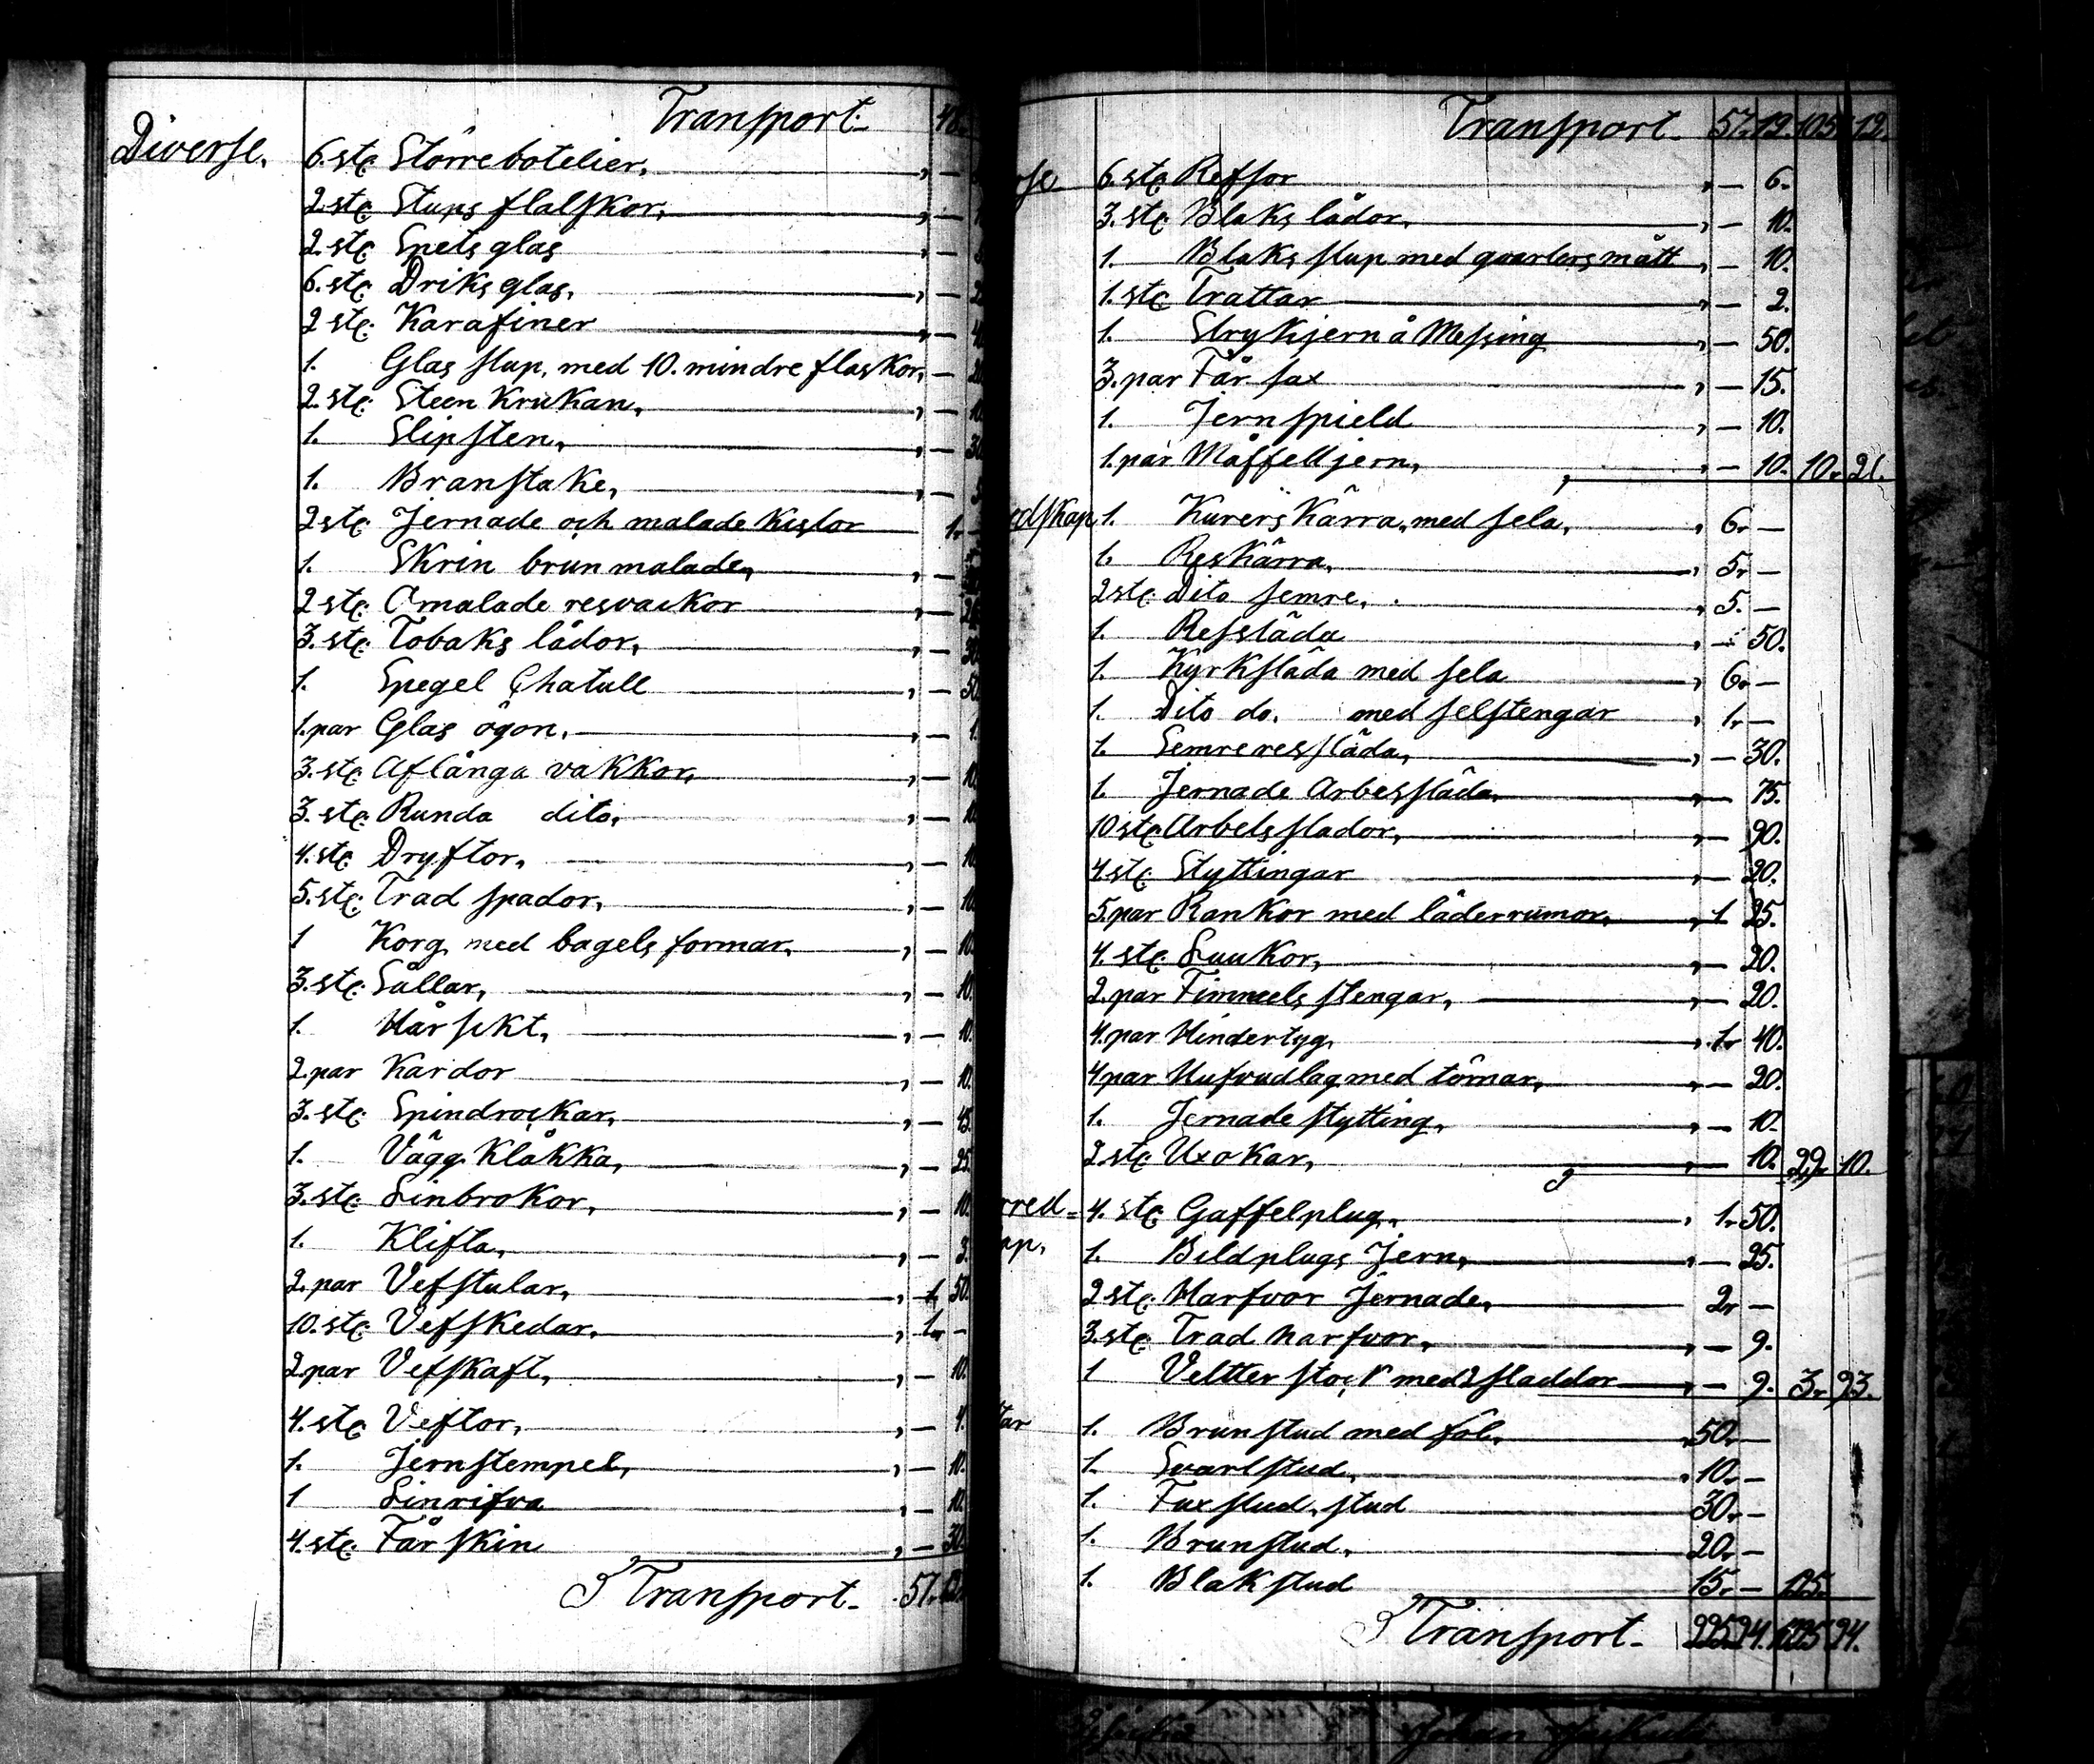 Transport
Diverse.
6. stc: Större botelier, " —
2. stc: Stups flalskor, " —
2. stc: Spets glas " —
6. stc: Driks glas, " —
2 stc: Karafiner " —
1. Glas slup, med 10. mindre flaskor, —
2. stc: Steen Krukan, " —
1. Slipsten, " —
1. Branstake, " —
2 stc: Jernade och malade Kistor 1. —
1. Skrin brun malade, " —
2 stc: Omalade resvackor " —
3. stc: Tobaks lådor, " — 30
1. Spegel Chatull " — 50
1. par Glas ögon, " — 1.
3. stc: Aflånga vakkor, " — 10
3. stc: Runda dito, " — 10
4. stc: Dryftor, " — 10
5. stc: Trad spador, " — 10
1 Korg, med bagels formar, " — 10
3. stc: Sållar, " — 10
1. Hår sikt, " — 10.
2. par Kardor " — 10.
3. stc: Spindrockar, " — 45
1. Vägg Klåkka, " — 25
3. stc: Linbrokor, " — 10.
1. Klifta, " — 3.
2. par Vefstular, " 1. 50.
10. stc: Vefskedar, " 1. —
2 par Vefskaft, " — 10.
4. stc: Veftor, " — 4.
1. Jernstempel, " — 10.
1 Linrifva " — 10.
4. stc: Får skin " — 30.
Transport 57.
Transport 57. 12. 105 12.
rse 6. stc: Refsor " — 6.
3. stc: Blaks lådor, " — 10.
1. Blaks slup med qvarters mått " — 10.
1. stc: Trattar " — 2.
1. Strykjern å Messing " — 50.
3. par Får sax " — 15.
1. Jernspield " — 10.
1. par Måffelljern, " — 10. 10. 21.
edskap 1. Kurers Kärra, med sela, " 6. —
1. Reskärra, " 5. —
2 stc: Dito semre, " 5. —
1. Resslåda " — 50.
1. Kyrkslåda med sela " 6. —
1. Dito do. med selstengar " 1. —
1. Semre resslåda, " — 30.
1. Jernade Arbesslåda, " — 75.
10 stc: Arbels slador, " — 90.
4 stc: Styttingar " — 20.
5. par Rankor med läderrumor, " 1 25.
4. stc: Luukor, " — 20.
2. par Fimmels stengar, " — 20.
4. par Hindertyg, " 1. 40.
4 par Hufvudlag med tömar, " — 20.
1. Jernade stytting, " — 10.
2 stc: Uxokar, " — 10. 29. 10.
rred- 4. stc: Gaffelplug, " 1. 50.
ap, 1. Bildplugs Jern, " — 25.
2 stc: Harfvor Jernade, 2. —
3. stc: Trad harfvor, " — 9.
1 Veltter stock med 2 sladdor " — 9. 3. 93.
tar 1. Brunstud med föl, " 50. —
1. Svartstud, " 10. —
1. Fuxstud, stud 30. —
1. Brunstud, 20. —
1. Blakstud 15. — 125.
Transport 225 24. 24.